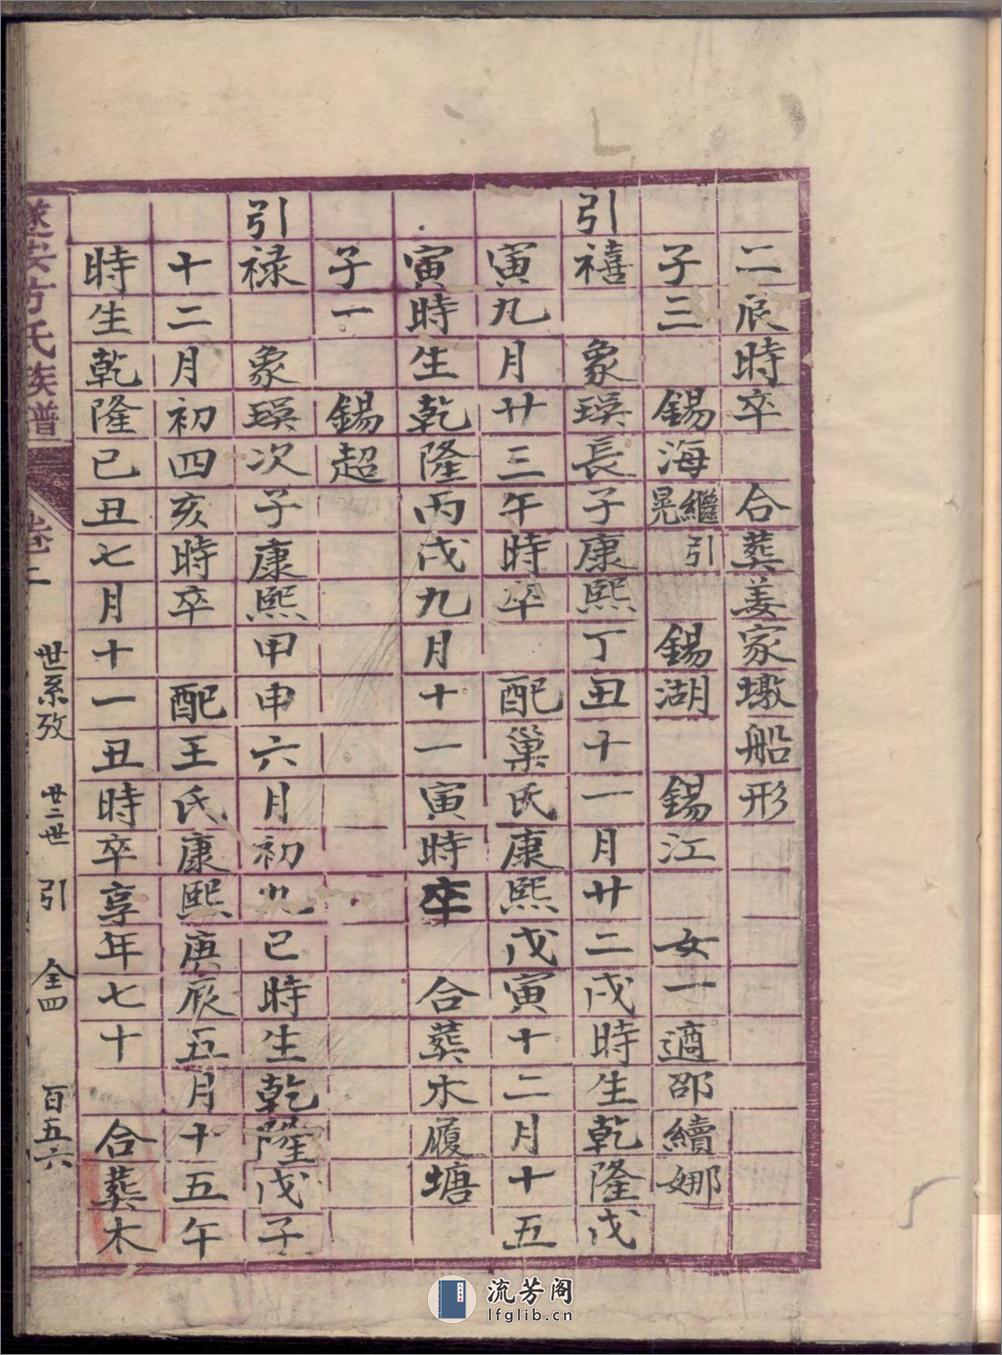 二辰時卒 合葬姜家墩船形
子三 錫海繼晃引 錫湖 錫江 女一適邵續娜
引禧 象瑛長子康熙丁丑十一月廿二戌時生乾隆戊
寅九月廿三午時卒 配巢氏康熙戊寅十二月十五
寅時生乾隆丙戌九月十一寅時卒 合葬木履塘
子一 錫超
引禄 象瑛次子康熙甲申六月初九巳時生乾隆戊子
十二月初四亥時卒 配王氏康熙庚辰五月十五午
時生乾隆己丑七月十一丑時卒享年七十 合葬木
遂安方氏族譜 卷二 世系攷 廿二世 引 仝四 百五六
流芳阁
lfglib.cn